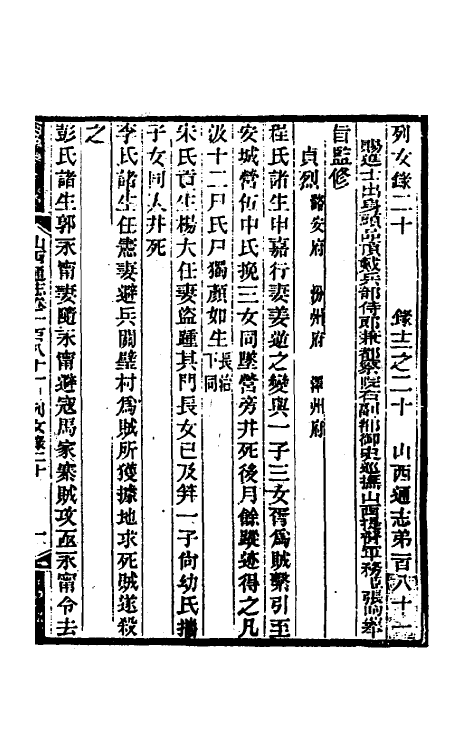 列女錄二十 錄士之二十 山西通志第一百八十一
賜進士出身頭品頂戴兵部侍郎兼都察院右副都御史巡撫山西提督軍務
旨監修
貞烈
潞安府 汾州府 澤州府
程氏諸生申嘉行妻姜逆之變與一子三女胥爲賊繫引至
安城營佰申氏挽三女同墜營旁井死後月餘蹤迹得之凡
汲十二尸氏尸獨顏如生長治下同
宋氏諸生楊大任妻盜踵其門長女已及笄一子尙幼氏攜
子女同入井死
李氏諸生任憲妻避兵關壁村爲賊所獲據地求死賊遂殺
之
彭氏諸生郭永甯妻隨永甯避寇馬家寨賊攻亟永甯令去
山西通志卷一百八十一 列女錄二十 一